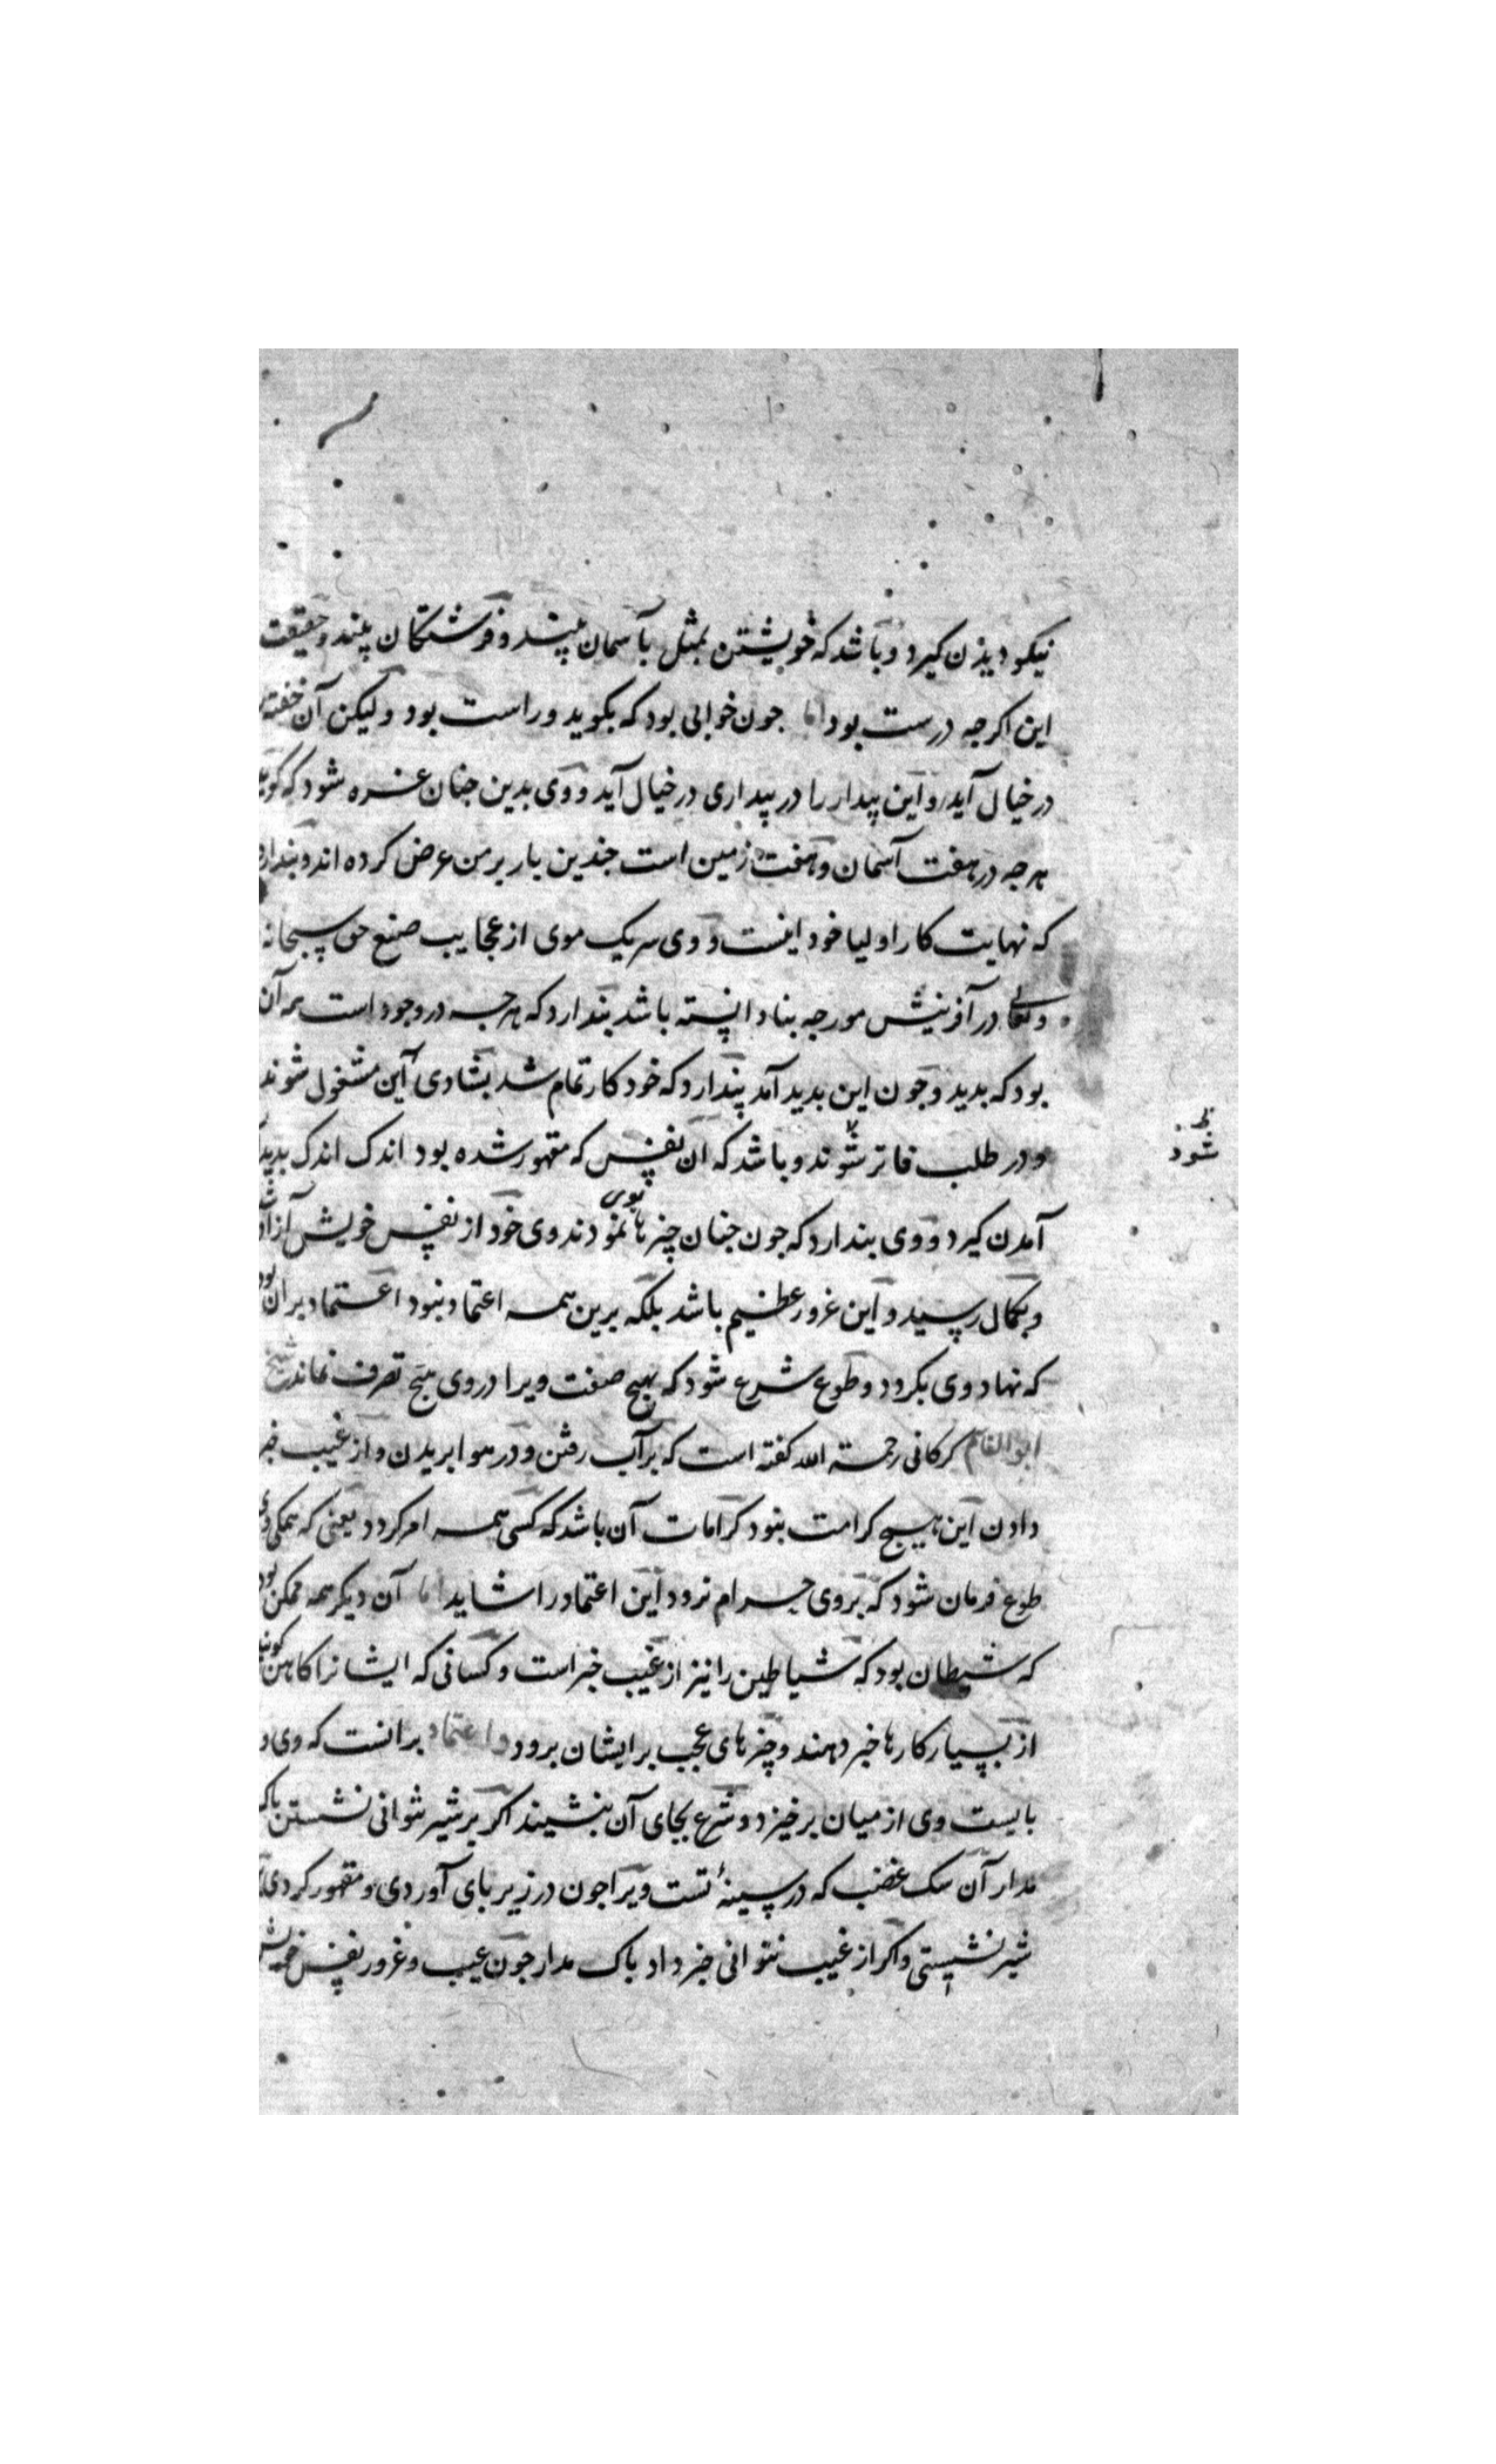 نیکو دیدن گیرد و باشد که خویشتن بمثل بآسمان بیند و فرشتگان بیند و حقیقت
این اکرجه درست بود اما جون خوابی بود که بگوید و راست بود ولیکن آن خفته
در خیال آید و این بیدار را در بیداری در خیال آید و وی بدین جنان غره شود که گوید
هرجه در هفت آسمان و هفت زمین است جندین بار بر من عرض کرده اند و بندارد
که نهایت کار اولیا خود اینست و وی سر یک موی از عجایب صنع حق سبحانه
و تعالی در آفرینش مورجه بنا دانسته باشد بندارد که هرجه در وجود است همه آن
بود که بدید و جون این بدید آمد پندارد که خود کار تمام شد بشادی این مشغول شوند
و در طلب فاتر شوند و باشد که آن نفس که مقهور شده بود اندک اندک بدید
شود
آمدن گیرد و وی بندارد که جون جنان چیزها بوی نمودند وی خود از نفس خویش آزاد شد
و بکمال رسید و این غرور عظیم باشد بلکه برین همه اعتماد نبود اعتماد بران بود
که نهاد وی بگردد و طوع شرع شود که بهیچ صفت ویرا در وی هیچ تصرف نماند شیخ
ابوالقاسم کرکانی رحمة الله گفته است که بر آب رفتن و در هوا بریدن و از غیب خبر
دادن این هیچ کرامت نبود کرامات آن باشد که کسی همه امر گردد یعنی که همگی وی
طوع فرمان شود که بر وی حرام نرود این اعتماد را شاید اما آن دیگر همه ممکن بود
که شیطان بود که شیاطین را نیز از غیب خبر است و کسانی که ایشانرا کاهن گویند
از بسیار کارها خبر دهند و چیزهای عجب بر ایشان برود و اعتماد برانست که وی و
بایست وی از میان برخیزد و شرع بجای آن بنشیند اکر بر شیر نتوانی نشستن باک
مدار آن سک غضب که در سینهٔ تست ویرا جون در زیر بای آوردی و مقهور کردی
شیر نشستی و اکر از غیب نتوانی خبر داد باک مدار جون عیب و غرور نفس خویش